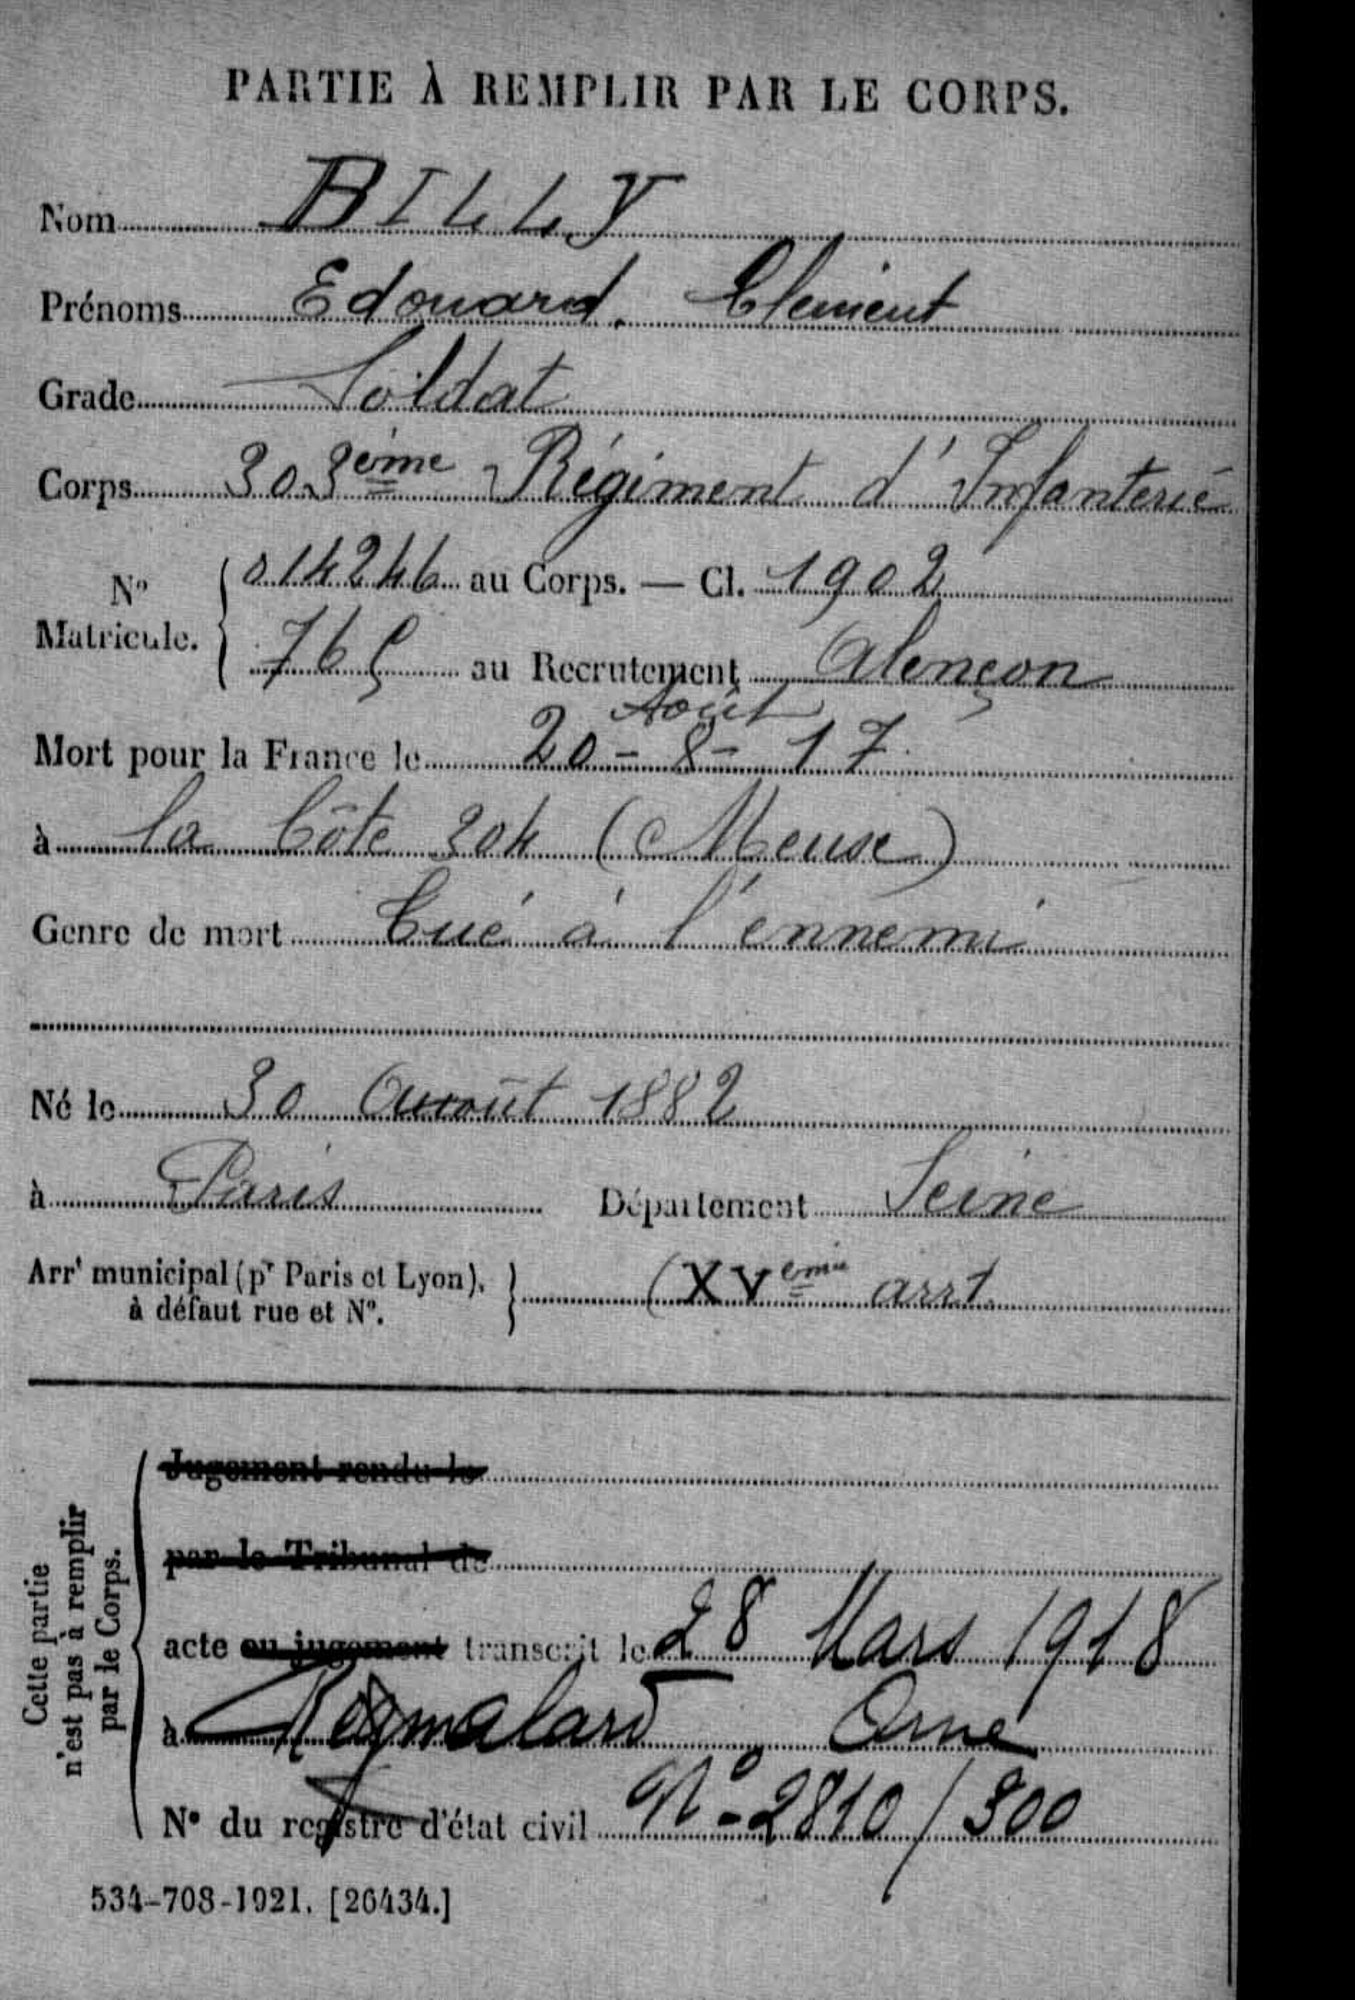 PARTIE À REMPLIR PAR LE CORPS.
Nom BILLY
Prénoms Edouard. Clement
Grade Soldat
Corps 303ème Régiment d'Infanterie
N° Matricule. 014246 au Corps. — Cl. 1902
765 au Recrutement Alençon
Août
Mort pour la France le 20-8-17.
à la Côte 304 (Meuse)
Genre de mort Tué à l'ennemi
Né le 30 Août 1882
à Paris Département Seine
Arrt municipal (pr Paris et Lyon), à défaut rue et N°. (XVeme arrt
Cette partie n'est pas à remplir par le Corps.
Jugement rendu le
par le Tribunal de
acte ou jugement transcrit le 28 Mars 1918
à Regmalard Orne
N° du registre d'état civil N°-2810/300
534-708-1921. [26434.]